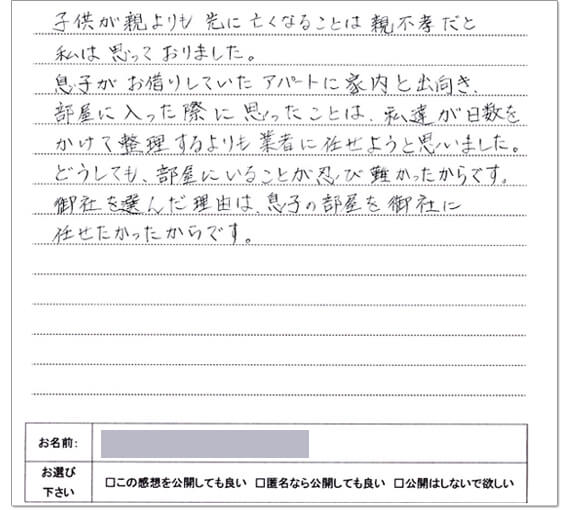 子供が親よりも先に亡くなることは親不孝だと
私は思っておりました。
息子がお借りしていたアパートに家内と出向き、
部屋に入った際に思ったことは、私達が日数を
かけて整理するよりも業者に任せようと思いました。
どうしても、部屋にいることが忍び難かったからです。
御社を選んだ理由は、息子の部屋を御社に
任せたかったからです。
お名前:
お選び
下さい
□この感想を公開しても良い □匿名なら公開しても良い □公開はしないで欲しい